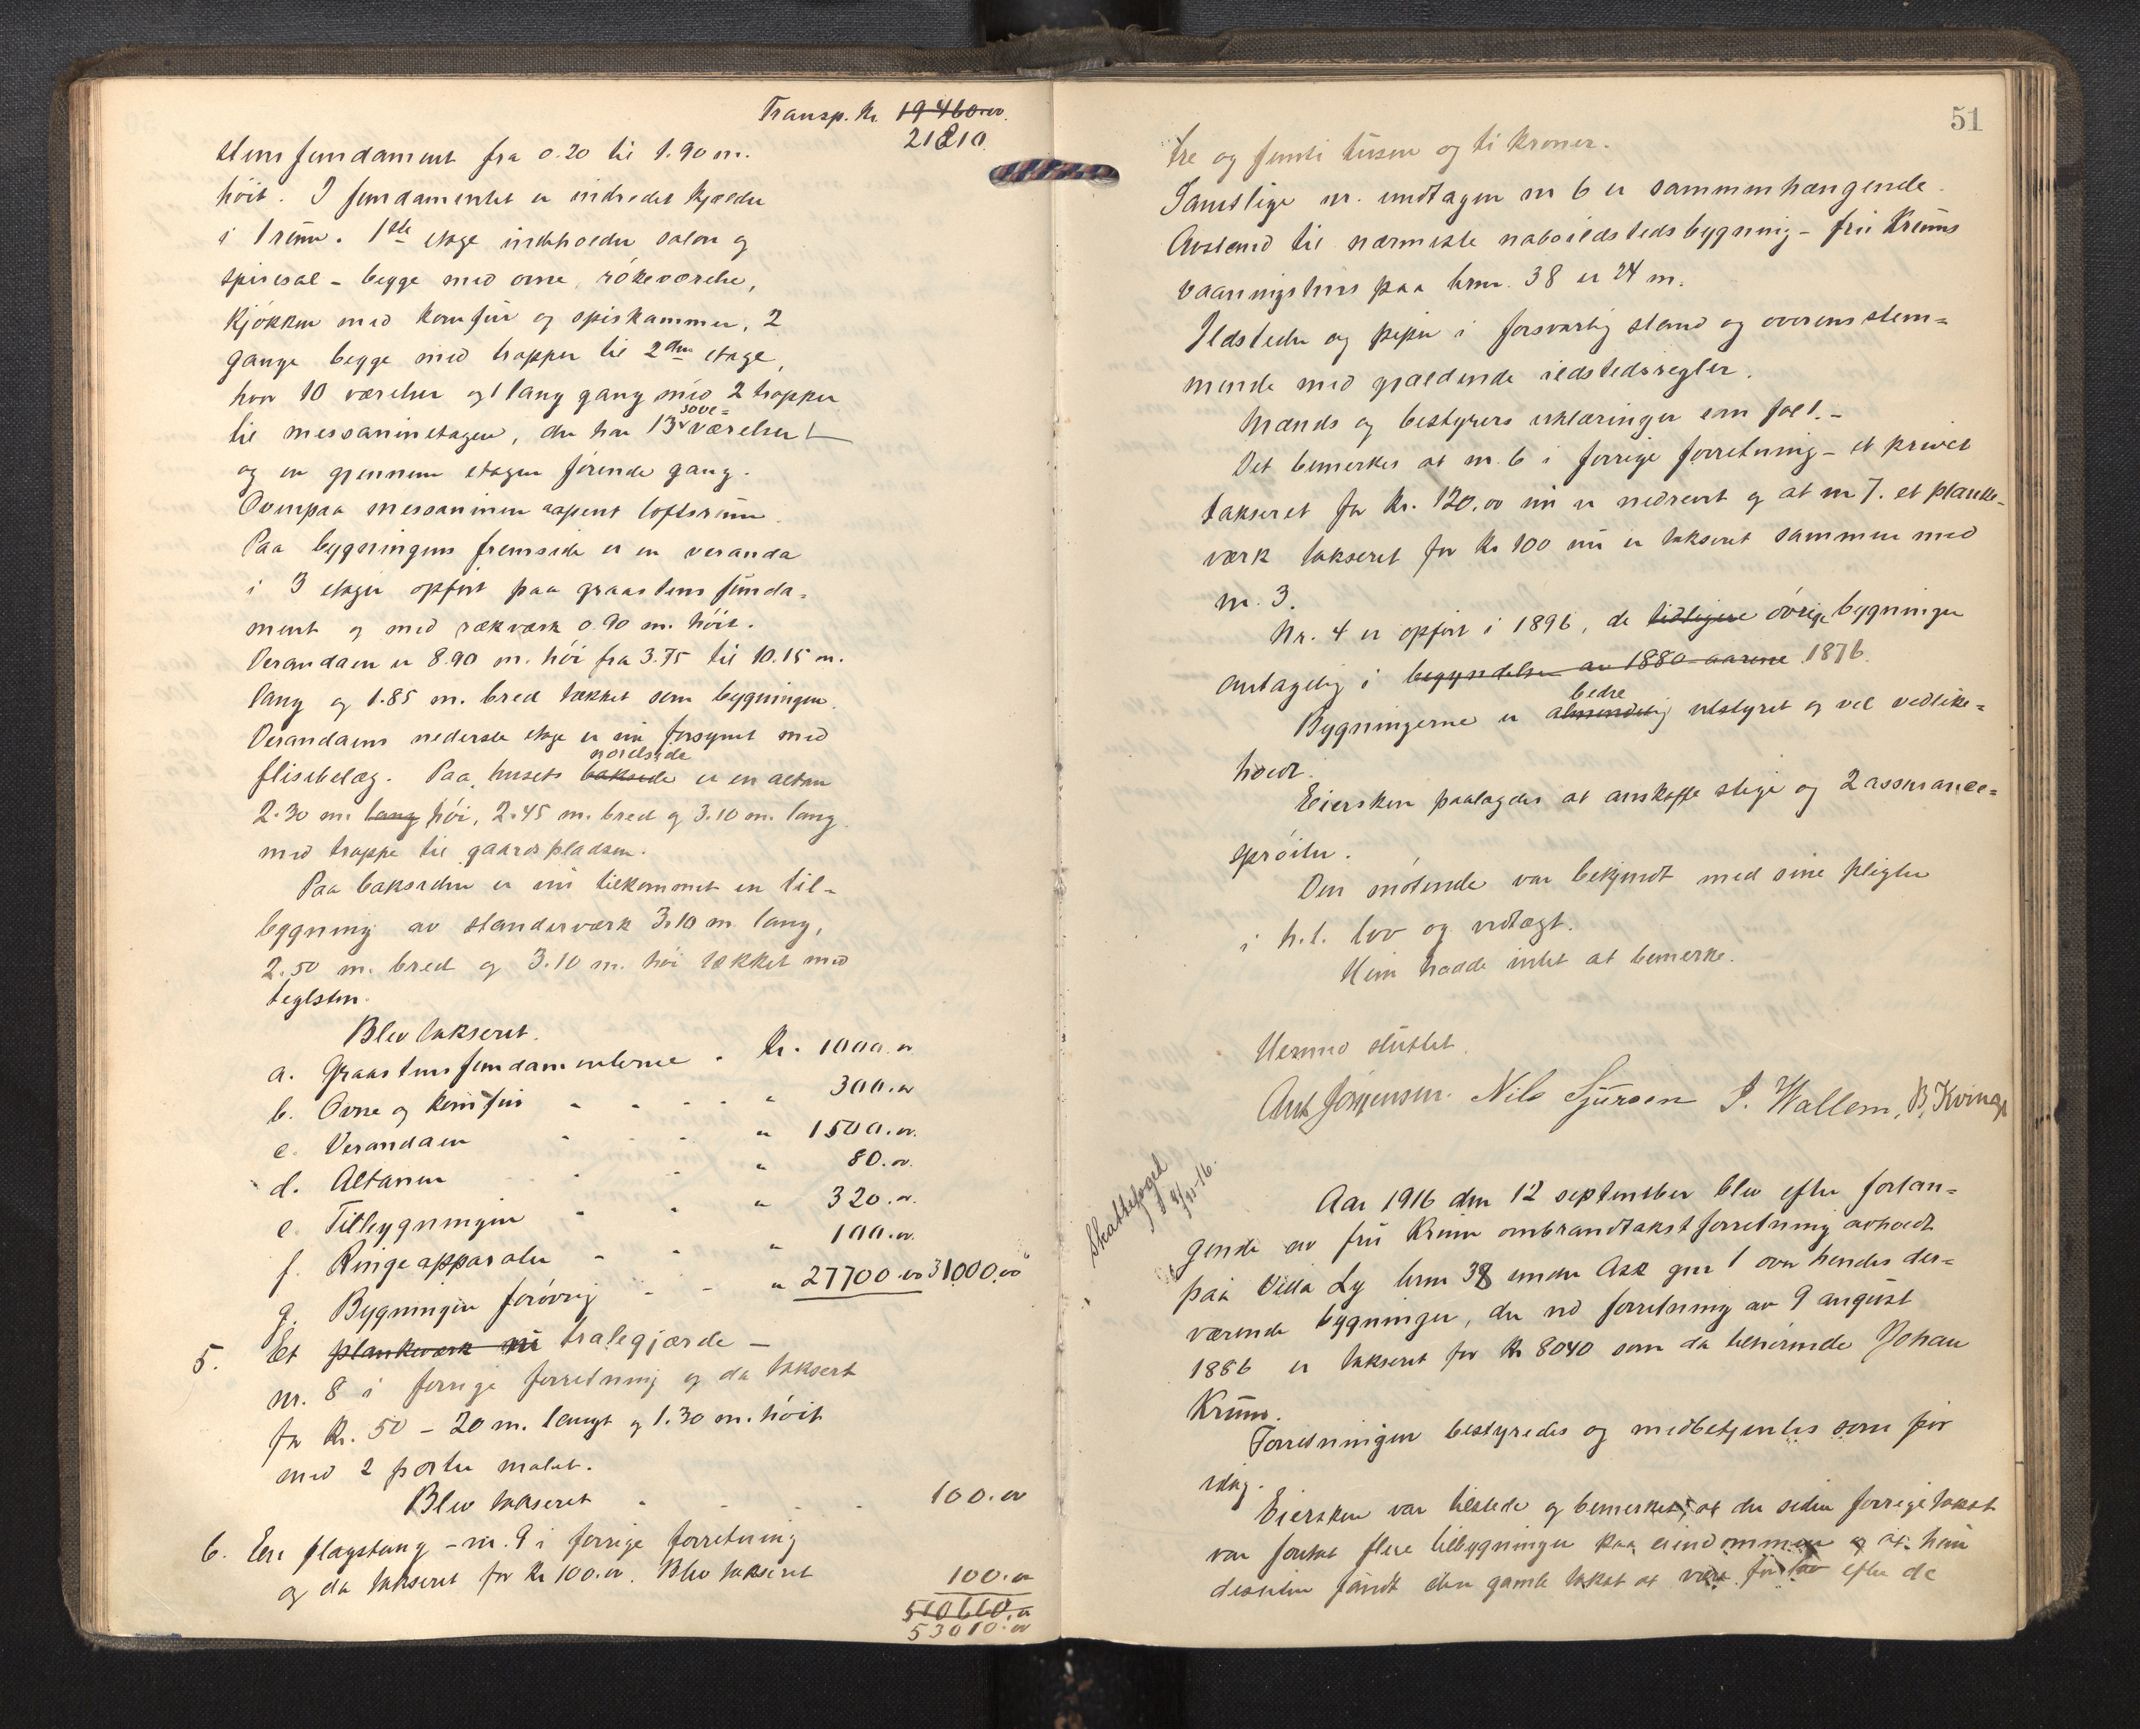 Transp. kr. 19460.oo.
21810
stensfundament fra 0.20 til 1.90 m.
höit. I fundamentet er indredet kjelder
i 1 rum. 1ste etage indeholder salon og
spisesal - begge med ovne, rökeværelse,
kjökken med komfur og spiskammer, 2
gange begge med trapper til 2den etage,
hvor 10 værelser og 1 lang gang med 2 trapper
til messaninetagen, der har 13 sove=værelser
og en gjennem etagen förende gang.
Ovenpaa messaninen aapent loftsrum.
Paa bygningens fremside er en veranda
i 3 etager opfört paa graastens funda=
ment og med rækværk 0.90 m. höit.
Verandaen er 8.90 m. höi fra 3.75 til 10.15 m.
lang og 1.85 m. bred tækket som bygningen.
Verandaens nederste etage er nu forsynet med
flisebelæg. Paa husets bakside nordside er en altan
2.30 m. lang höi, 2.45 m. bred og 3.10 m. lang
med trappe til gaardspladsen.
Paa baksiden er nu tilkommet en til=
bygning av standerværk 3.10 m. lang,
2.50 m. bred og 3.10 m. höi tækket med
teglsten.
Blev takseret.
a. Graastensfundamenterne . kr. 1000.oo
b. Ovne og komfur - - - - " 300.oo
c. Verandaen - - - " 1500.oo.
d. Altanen - - - " 80.oo.
e. Tilbygningen - - " 320.oo.
f. Ringeapparater - - " 100.oo.
g. Bygningen forövrig - - " 27700.oo 31000.oo
5. Et plankeværk nu tralegjærde -
nr. 8 i forrige forretning og da taksert
for kr. 50 - 20 m. langt og 1.30 m. höit
med 2 porter malet.
Blev takseret - - - - 100.oo
6. En flagstang - nr. 9 i forrige forretning
og da takseret for kr 100.oo. Blev takseret 100.oo
510610.oo
53010.oo
51
tre og femti tusen og ti kroner.
Samtlige nr. undtagen nr 6 er sammenhængende.
Avstand til nærmeste naboildstedsbygning - fru Krums
vaaningshus paa brnr. 38 er 24 m.
Ildsteder og piper i forsvarlig stand og overensstem=
mende med gjældende ildstedsregler.
Mænds og bestyrers erklæringer som fol 1.-
Det bemerkes at nr. 6 i forrige forretning - et
takseret for kr. 120.oo nu er nedrevet og at nr 7. et planke-
værk takseret for kr 100 nu er takseret sammen med
nr. 3.
Nr. 4 er opfört i 1896, de tidligere övrige bygninger
antagelig i begyndelsen av 1880-aarene 1876.
Bygningerne er almindelig bedre utstyret og vel vedlike=
holdt.
Eiersken paalagdes at anskaffe stige og 2 assurance=
spröiter.
Den mötende var bekjendt med sine pligter
i h.t. lov og vedtægt.
Hun hadde intet at bemerke.
Hermed sluttet.
Ant Jörgensen. Nils Sjursen J. Wallem, B. Kvinge
Skattefoged
Aar 1916 den 12 september blev efter forlan=
gende av fru Krum ombrandtakstforretning avholdt
paa Villa Ly brnr 38 under Ask gnr 1 over hendes der=
værende bygninger, der ved forretning av 9 august
1886 er takseret for kr 8040 som da tilhörende Johan
Krum.
Forretningen bestyredes og medbetjentes som för
idag.
Eiersken var tilstede og bemerket, at der siden forrige takst
var foretat flere tilbygninger paa eiendommen og at hun
desuten fandt den gamle takst at være for lav efter de